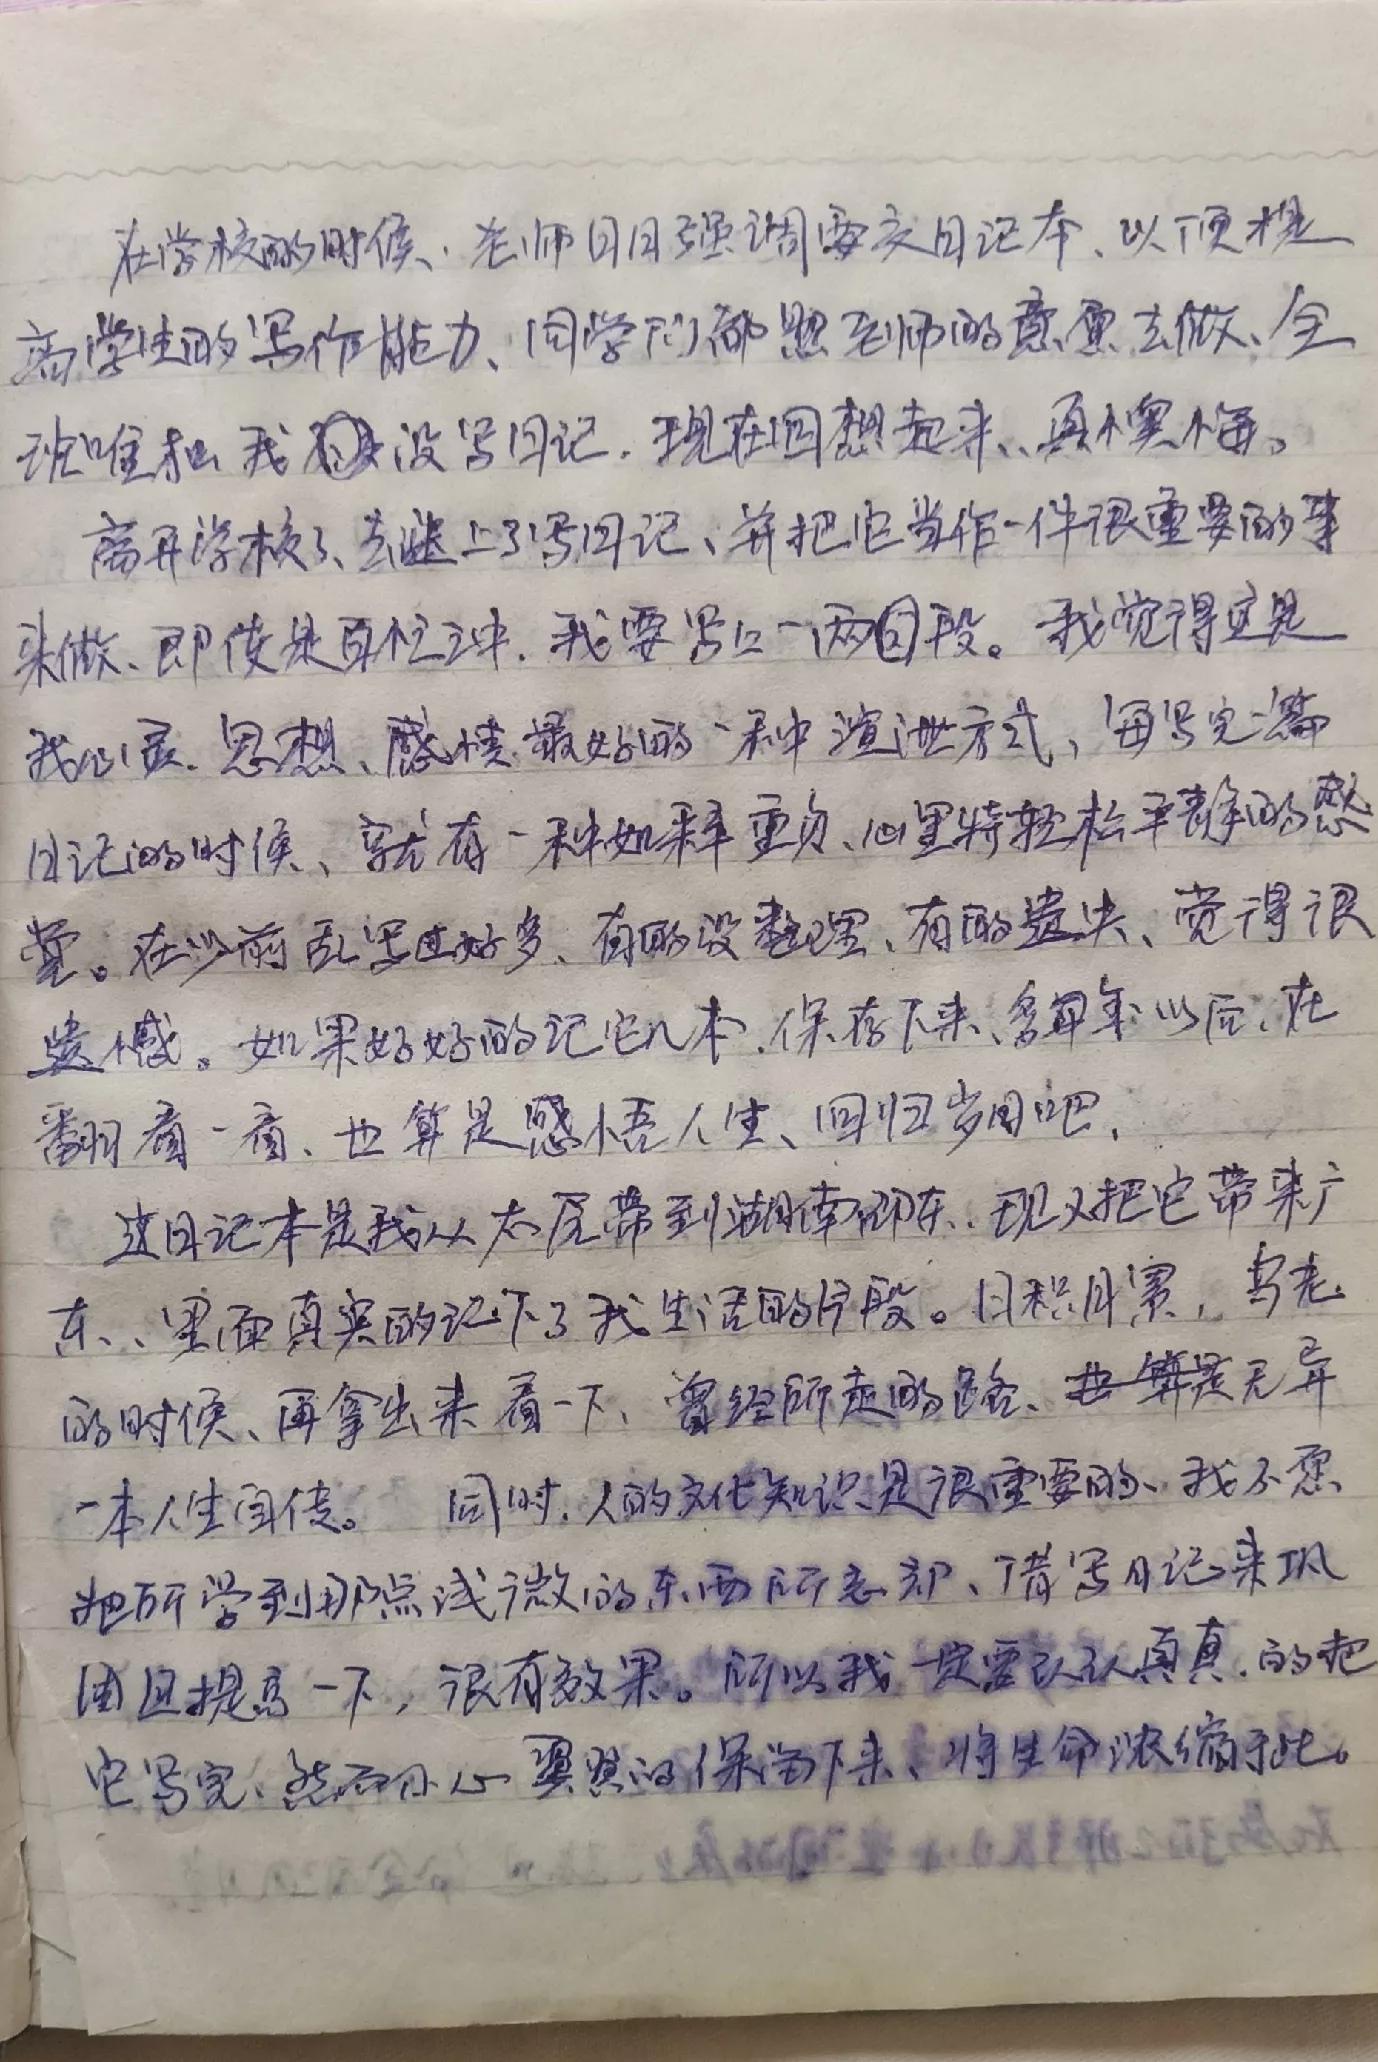 在学校的时候、老师日日强调要交日记本、以便提
高学生的写作能力、同学们都照老师的意愿去做、全
班唯独我没写日记．现在回想起来、真懊悔。
离开学校了、却迷上了写日记、并把它当作一件很重要的事
来做、即使是百忙之中．我要写上一两段。我觉得这是
我心灵．思想、感情最好的一种渲泄方式，每写完一篇
日记的时候、就有一种如释重负、心里特轻松平静的感
觉。在以前乱写过好多、有的没整理、有的遗失、觉得很
遗憾。如果好好的记它几本．保存下来、多年以后．在
翻看一看、也算是感悟人生、回归岁月吧．
这日记本是我从太原带到湖南邵东．．现又把它带来广
东、、里面真实的记下了我生活的片段。日积月累，当老
的时候、再拿出来看一下、曾经所走的路、也算是无异
一本人生自传。 同时．人的文化知识是很重要的、我不愿
把所学到那点浅微的东西所忘却、借写日记来巩
固且提高一下，很有效果。所以我一定要认认真真．的把
它写完、然而小心翼翼的保留下来、将生命浓缩于此。